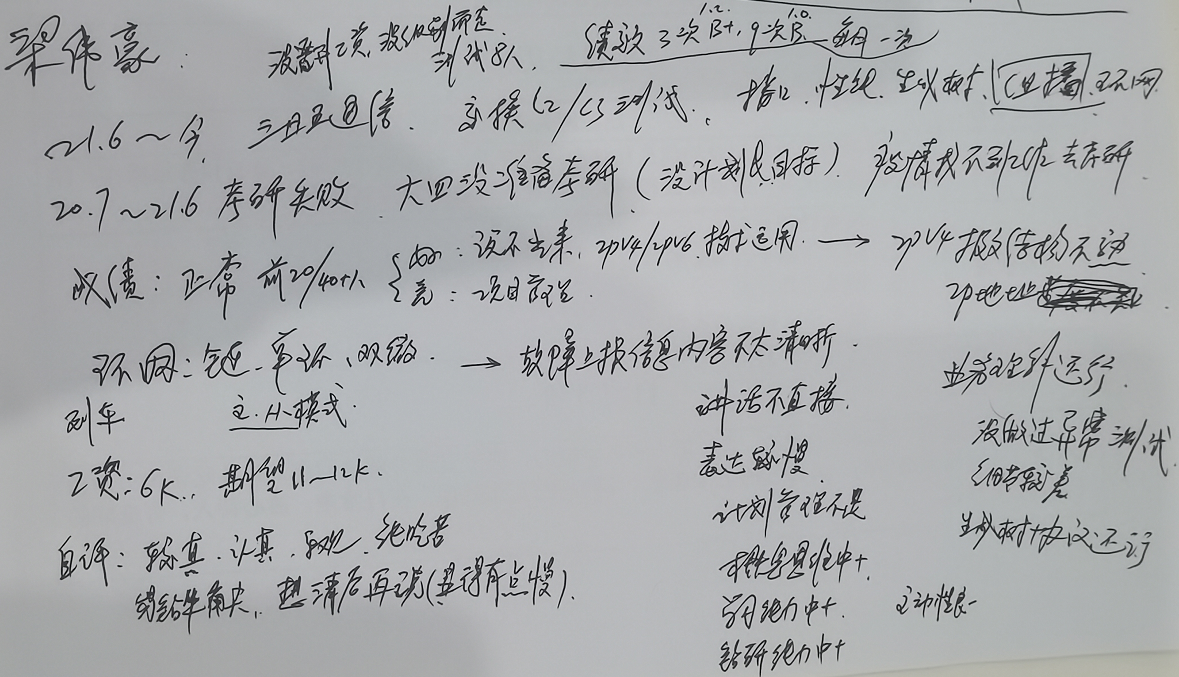 梁伟豪：没晋升工资，没 测试8人. 绩效 3次B+, 9次B. 每月一次
1.2. 1.0.
21.6～今, 三旺通信. 交换L2/L3测试. 接口, 性能. 生成树, 组播 环网
20.7～21.6 考研失败. 大四没准备考研 (没计划及目标). 疫情找不到工作 去考研
成绩：正常 前20/40+人 说不出来, IPV4/IPV6 技术运用. → IPV4 报文结构不熟
竞：项目管理. IP地址
环网：链、单环、双 → 故障上报信息内容不太清晰.
列车 主.从模式.
业务 运行.
讲话不直接. 没做过异常测试
工资：6K., 期望11～12K. 表达较慢 细节较差
计划管理不足
自评：较真. 认真. 乐观. 能吃苦 生成树协议还行
钻牛角尖, 想清后再说(显得有点慢). 思维中+,
学习能力中+. 主动性良-
钻研能力中+